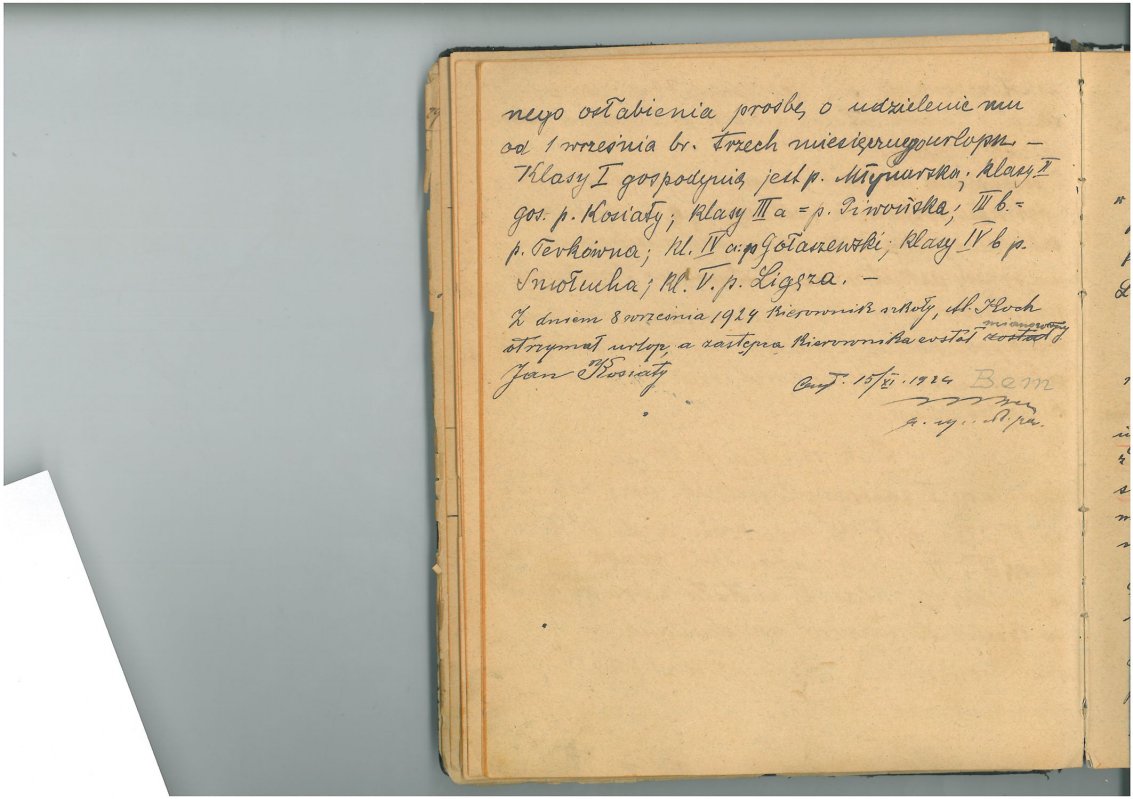 nego osłabienia prośbę o udzielenie mu
od 1 września br. trzech miesięcznego urlopu. —
Klasy I gospodynią jest p. Młynarska; klasy II
gos. p. Kosiaty; klasy III a = p. Piwońska; III b. =
p. Terkówna; kl. IV a: p Gołaszewski; klasy IV b p.
Smołucha; kl. V. p. Ligęza. —
Z dniem 8 września 1924 kierownik szkoły, Al. Koch
mianowany
otrzymał urlop, a zastępcą kierownika został został
Jan Kosiaty
15/XI. 1924 Bem